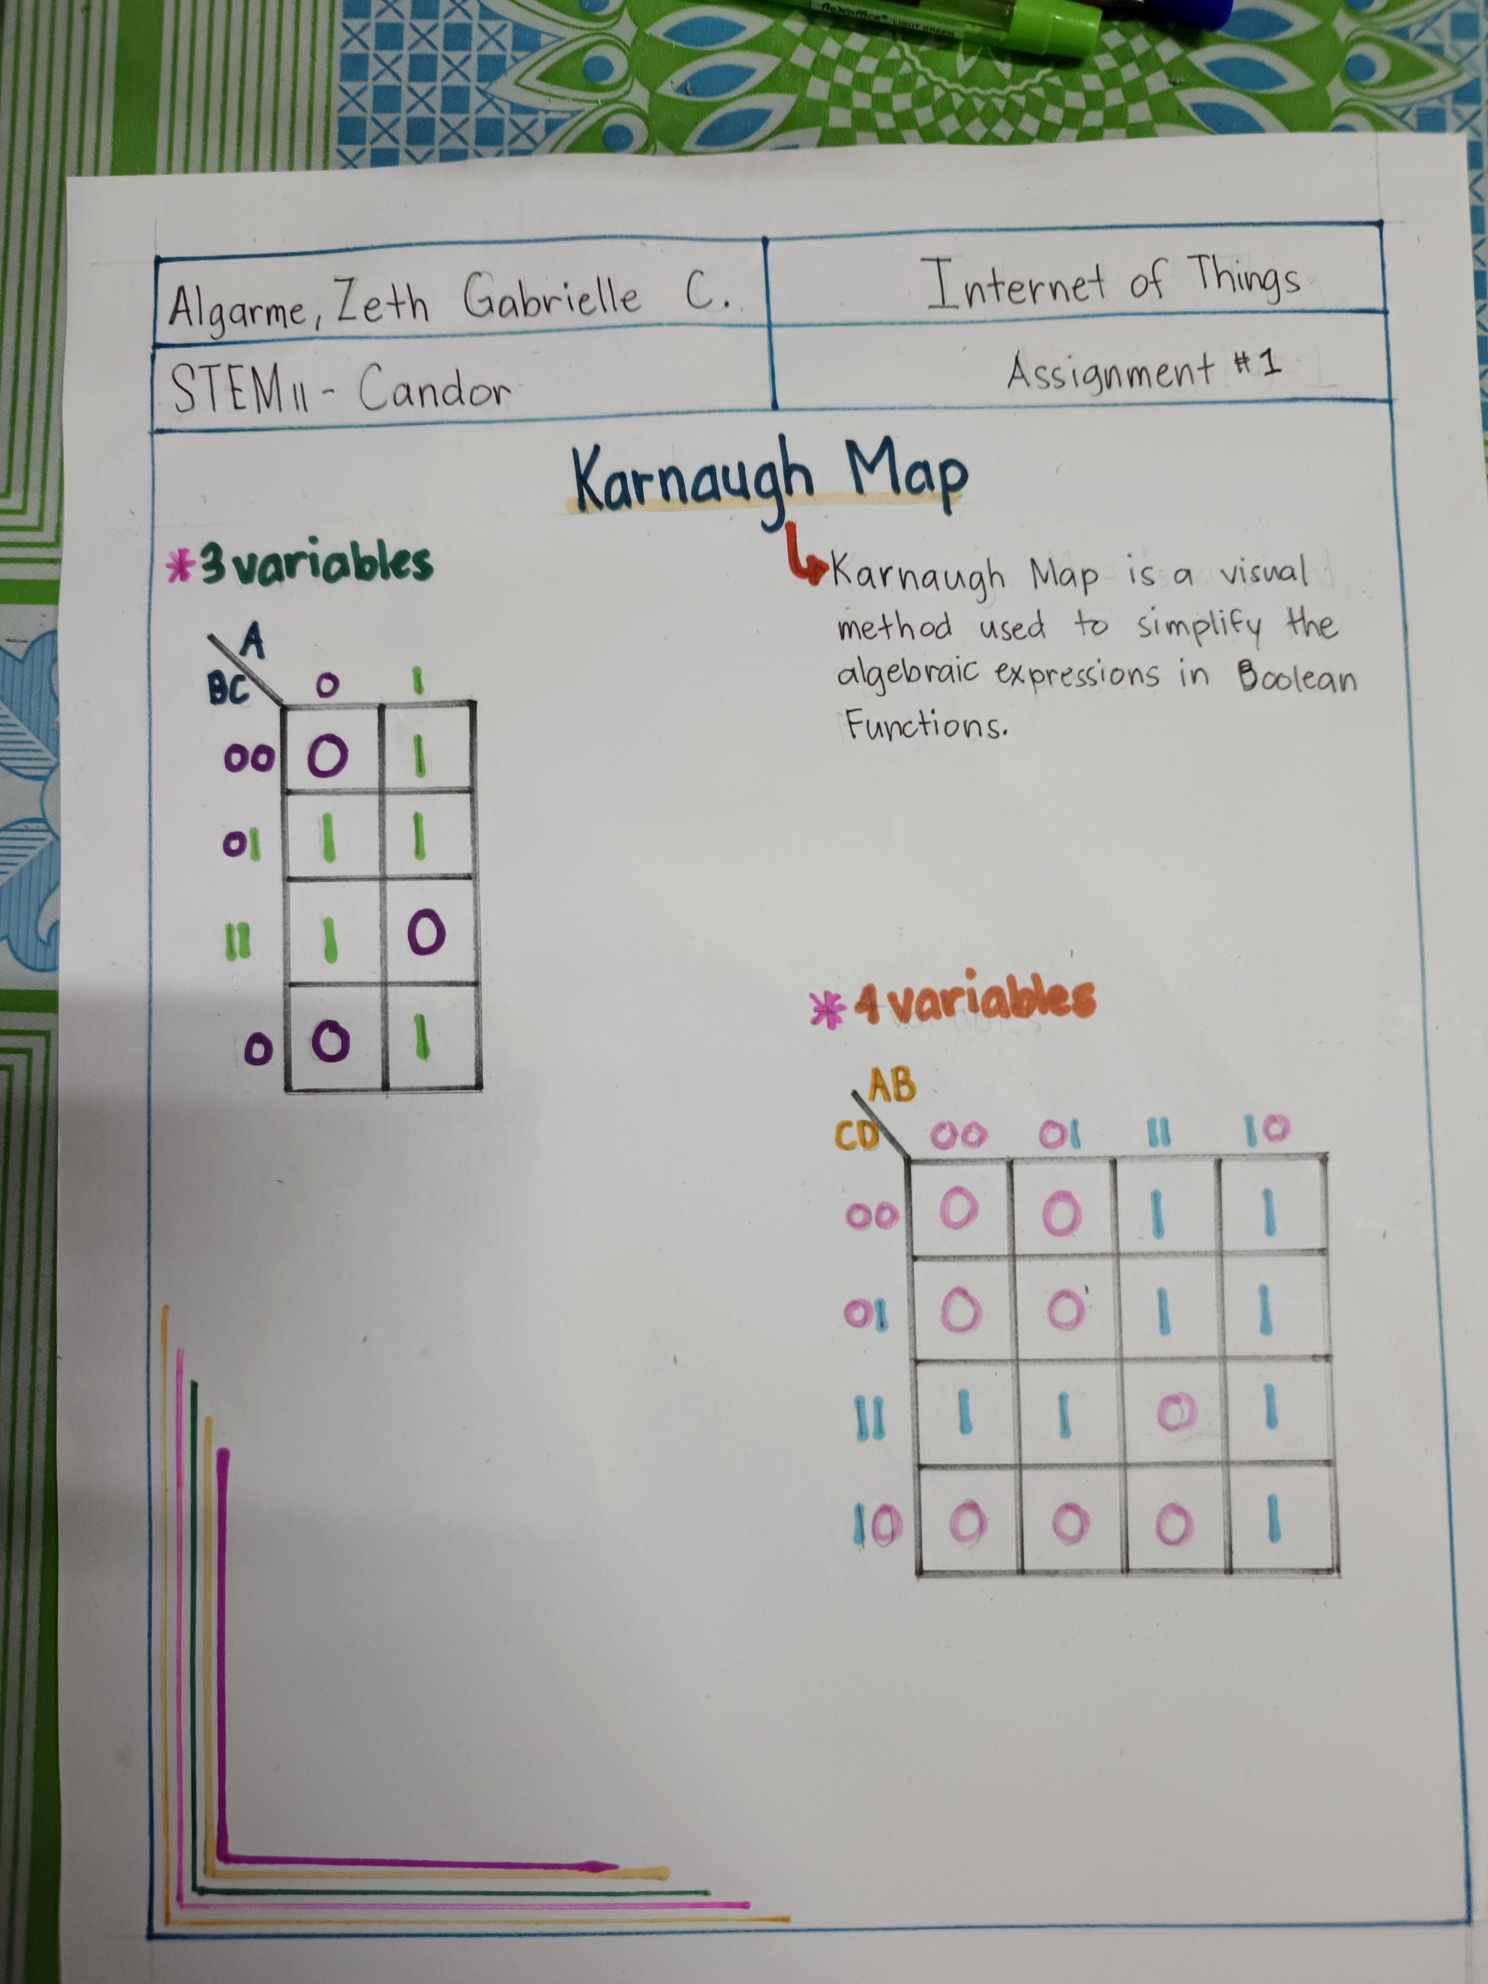 Algarme, Zeth Gabrielle C.
Internet of Things
STEM 11 - Candor
Assignment #1
Karnaugh Map
*3 variables
Karnaugh Map is a visual
method used to simplify the
algebraic expressions in Boolean
Functions.
A
BC 0 1
00 0 1
01 1 1
11 1 0
0 0 1
*4 variables
AB
CD 00 01 11 10
00 0 0 1 1
01 0 0 1 1
11 1 1 0 1
10 0 0 0 1